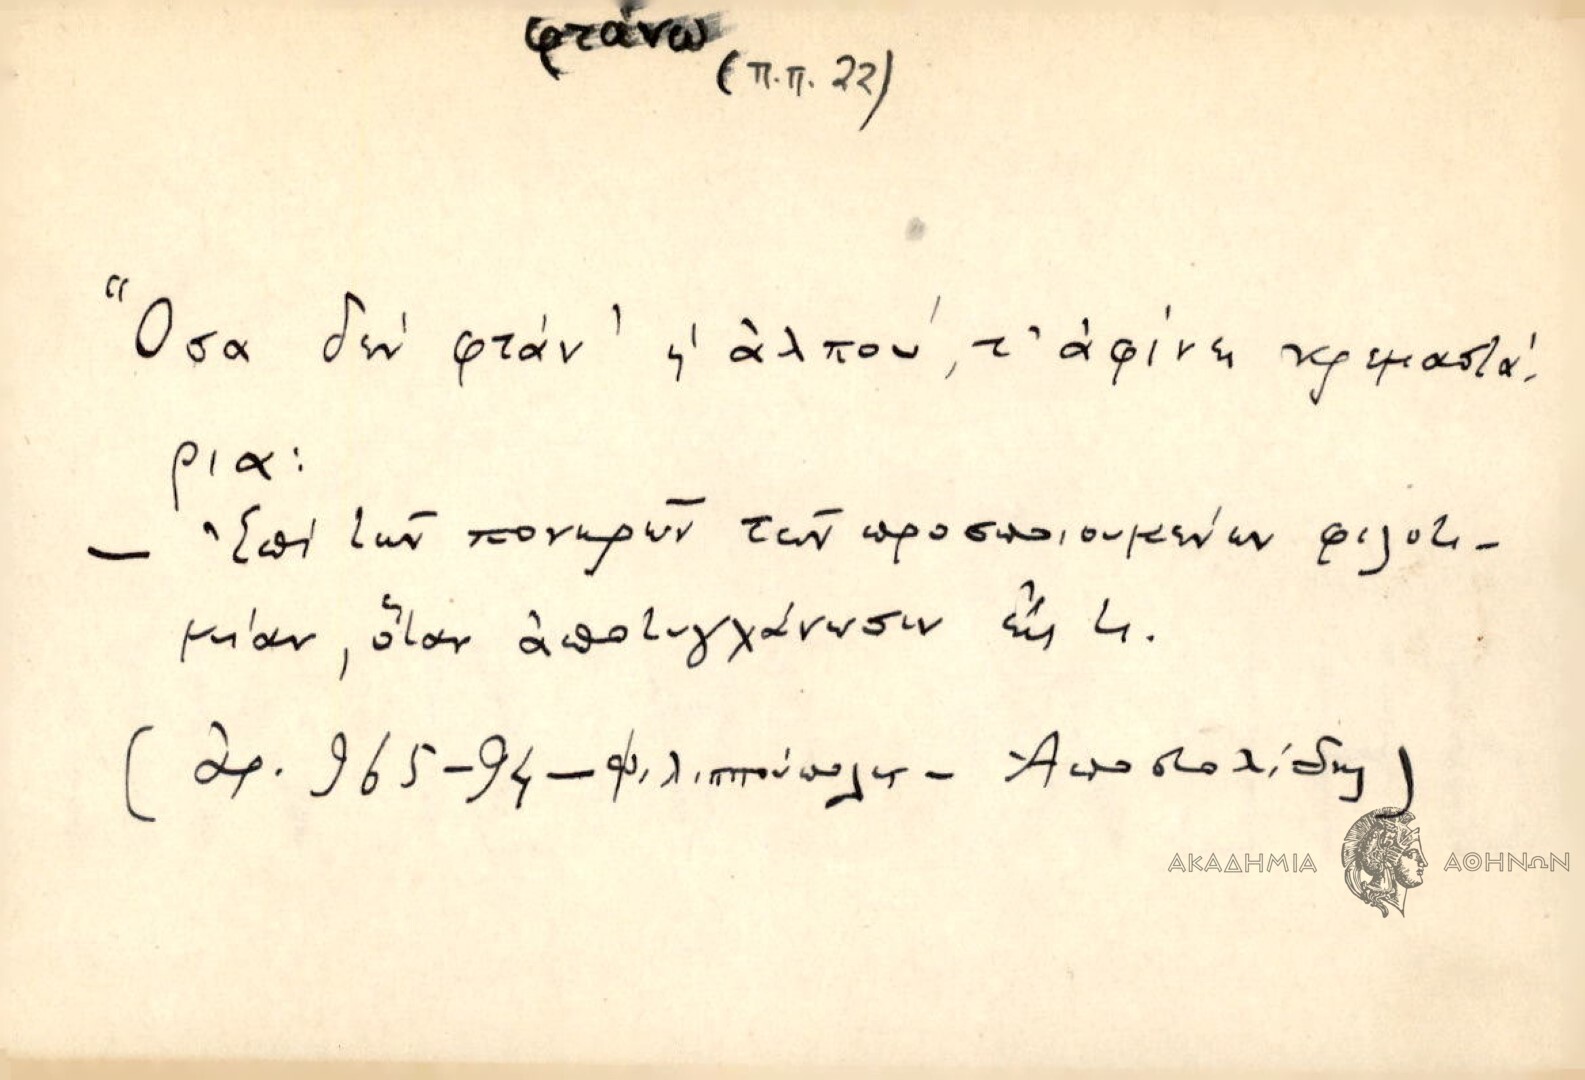 φτάνω
(π.π. 22)
Ὅσα δέν φτάν' ἡ ἀλπού, τ' ἀφίνει κρεμαστά-
ρια:
— Ἐπί τῶν πονηρῶν τῶν προσποιουμένων φιλοτι-
μίαν, ὅταν ἀποτυγχάνωσιν εἴς τι.
(Ἀρ. 965-94 — Φιλιππούπολις - Ἀποστολίδης)
ΑΚΑΔΗΜΙΑ ΑΘΗΝΩΝ